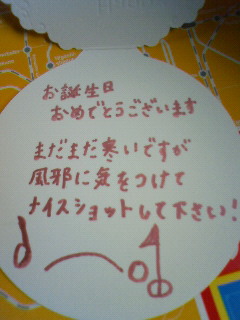 お誕生日
おめでとうございます
まだまだ寒いですが
風邪に気をつけて
ナイスショットして下さい!